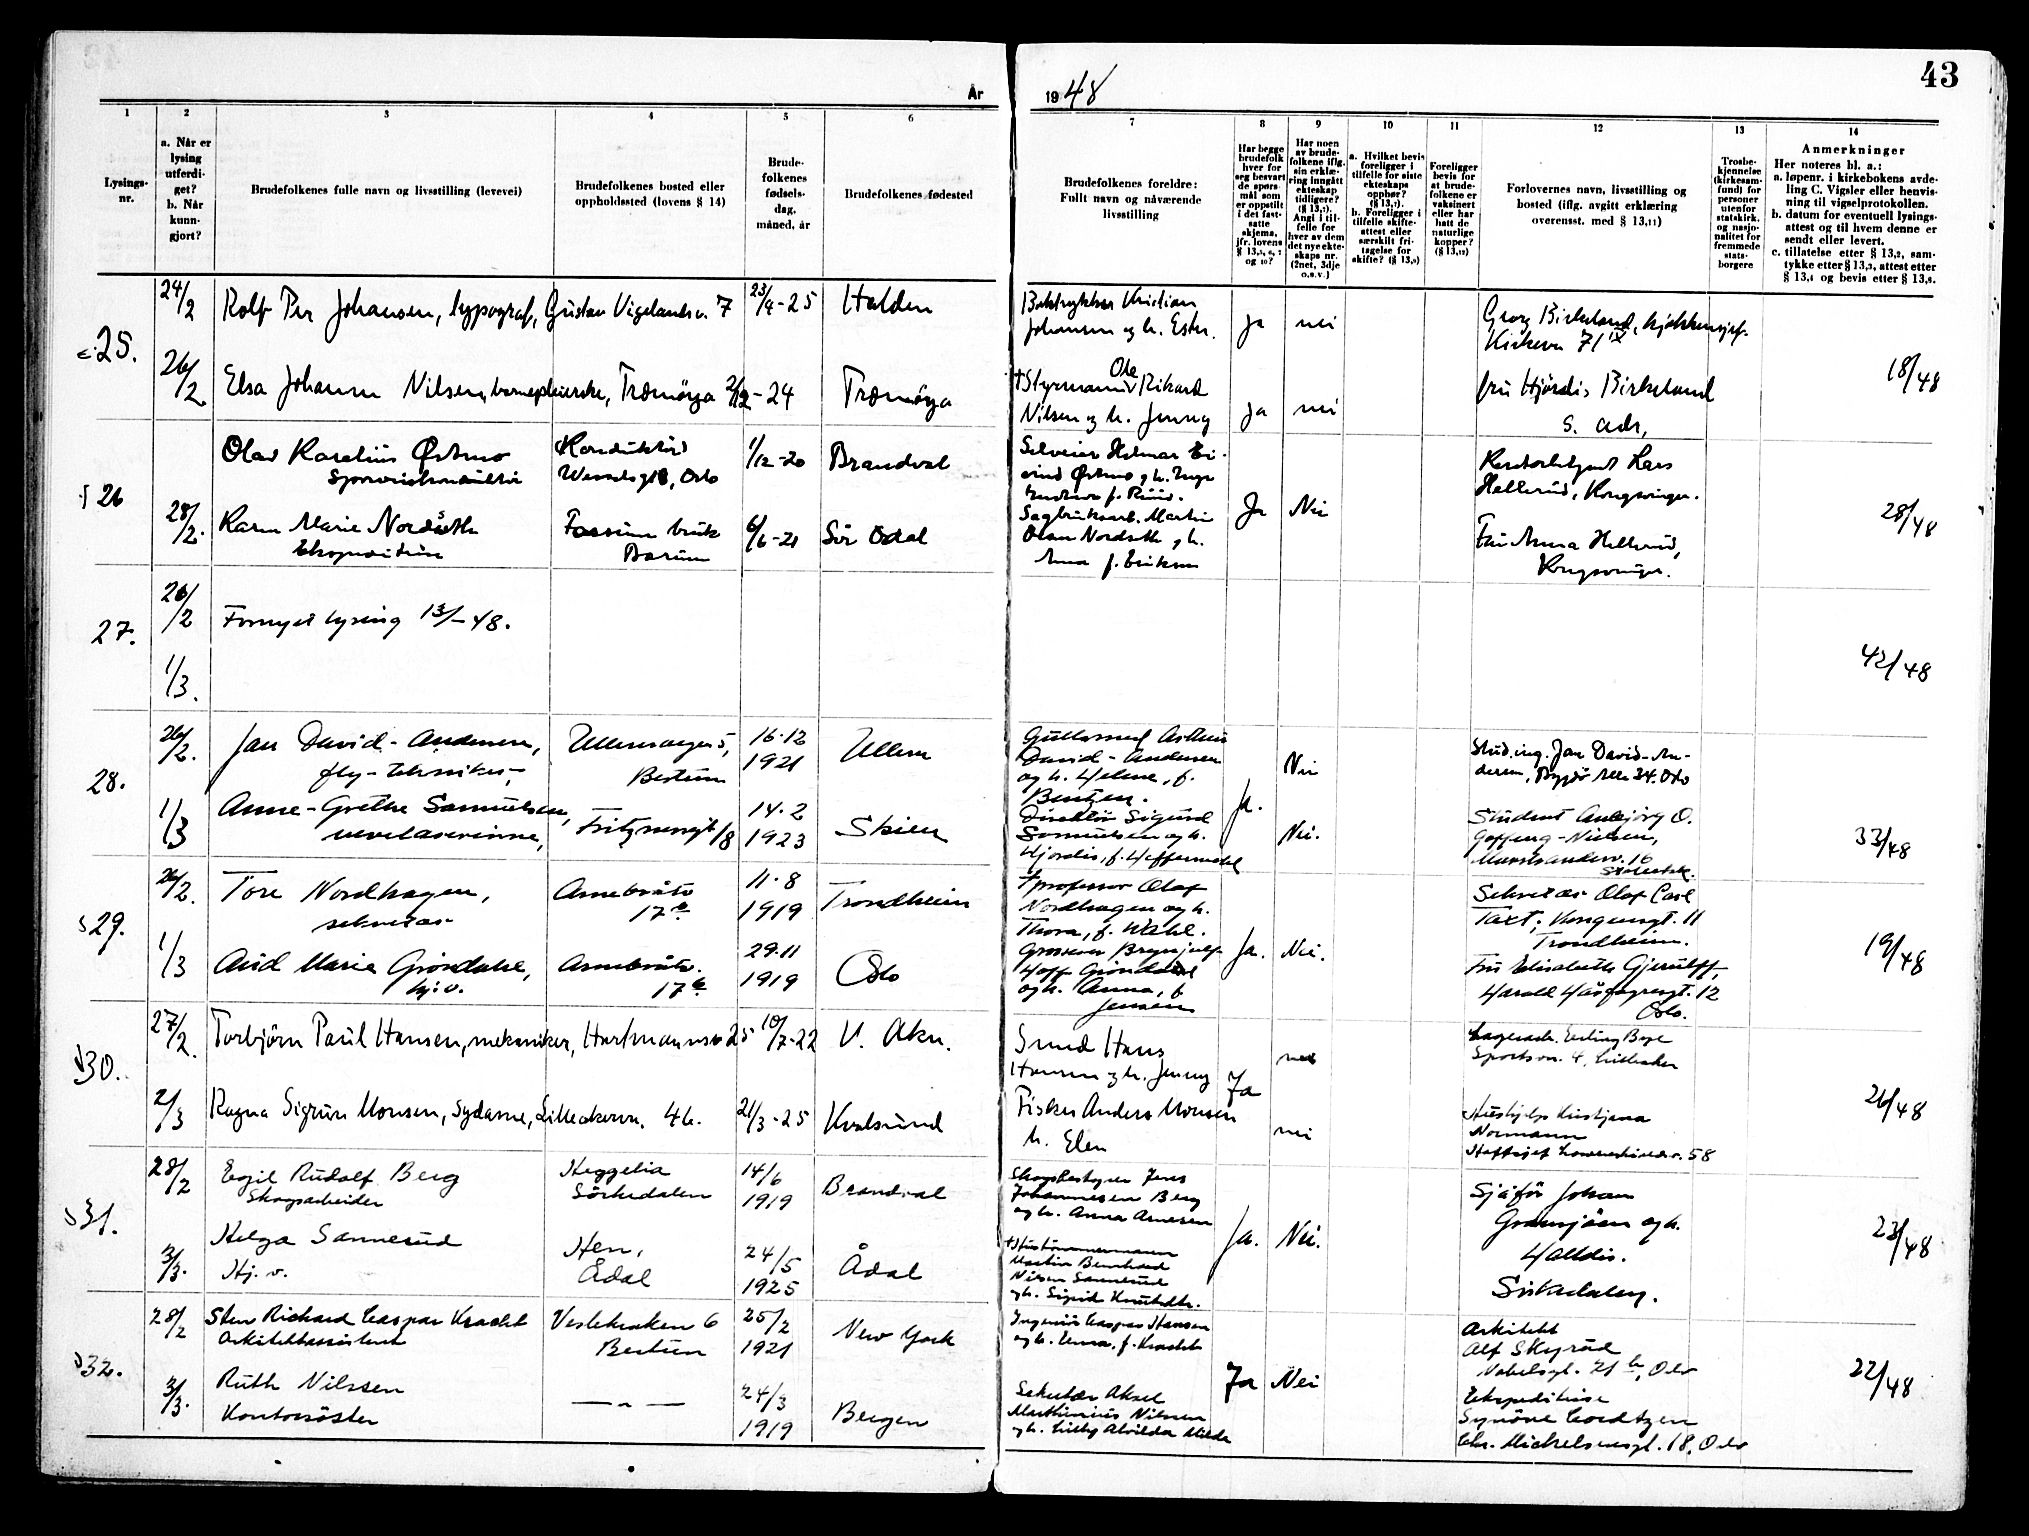 43
År
1948
1
2
3
4
5
6
7
8
9
10
11
12
13
14
Lysings-
nr.
a. Når er
lysing
utferdi-
get?
b. Når
kunn-
gjort?
Brudefolkenes fulle navn og livsstilling (levevei)
Brudefolkenes bosted eller
oppholdssted (lovens § 14)
Brude-
folkenes
fødsels-
dag,
måned, år
Brudefolkenes fødested
Brudefolkenes foreldre:
Fullt navn og nåværende
livsstilling
Har begge
brudefolk
hver for
seg besvart
de spørs-
mål som
er oppstilt
i det fast-
satte
skjema,
jfr. lovens
§ 13,5, 6, 7
og 10?
Har noen
av brude-
folkene iflg.
sin erklæ-
ring inngått
ekteskap
tidligere?
(§ 13,7).
Angi i til-
felle for
hver av dem
det nye ekte-
skaps nr.
(2net, 3dje
o.s.v.)
a. Hvilket bevis
foreligger i
tilfelle for siste
ekteskaps
opphør?
(§ 13,7).
b. Foreligger i
tilfelle skifte-
attest eller
særskilt fri-
tagelse for
skifte? (§ 13,9)
Foreligger
bevis for
at brude-
folkene er
vaksinert
eller har
hatt de
naturlige
kopper?
(§ 13,12)
Forlovernes navn, livsstilling og
bosted (iflg. avgitt erklæring
overensst. med § 13,11)
Trosbe-
kjennelse
(kirkesam-
fund) for
personer
utenfor
statskirk.
og nasjo-
nalitet for
fremmede
stats-
borgere
Anmerkninger
Her noteres bl. a.:
a. løpenr. i kirkebokens avde-
ling C. Vigsler eller henvis-
ning til vigselprotokollen.
b. datum for eventuell lysings-
attest og til hvem denne er
sendt eller levert.
c. tillatelse etter § 13,2, sam-
tykke etter § 13,3, attest etter
§ 13,4 og bevis etter § 13,8.
25.
24/2
Rolf Per Johansen, typograf, Gustav Vigelandsv. 7
23/4-25
Halden
Boktrykker Kristian
Johansen og h. Ester.
Ja
nei
Georg Birkeland, kjøkkensjef.
Kirkevn 71 IX
26/2
Elsa Johanne Nilsen, barnepleierske, Tromøya
2/12-24
Tromøya
†Styrmann Ole Rikard
Nilsen og h. Jenny
Ja
nei
fru Hjördis Birkeland
s. adr,
18/48
26
Olav Karelius Østmo
Konduktör
Wesselsgt 8, Oslo
1/12-20
Brandval
28/2.
Karen Marie Nordseth
Ekspeditrise
Fossum bruk
Bærum
6/6-21
Sör Odal
Sagbruksarb. Martin
Olsen Nordseth og h.
Anna f. Eriksen
Ja
Nei
Hellerud, Kongsvinger.
Fru Anna Hellerud,
Kongsvinger.
28/48
27.
26/2
Fornyet lysing 13/-48.
1/3.
42/48
28.
26/2.
Jan David-Andersen,
fly-tekniker,
Ullernveien 5,
Bestum
16.12
1921
Ullern
Gullsmed Arthur
David-Andersen
og h. Helene, f.
Bentzen.
Nei
Stud.ing. Jan David-An-
dersen, Bygdö Alle 34. Oslo
1/3
Anne-Grethe Samuelsen,
Fritznersgt 1/8
14.2
1923
Skien
Direktör Sigurd
Samuelsen og h.
Ja.
Nei.
33/48
29.
26/2.
Tore Nordhagen,
sekretær
Arnebråtv
17 b
11.8
1919
Trondheim
†professor Olaf
Nordhagen og h.
Thora, f. Wahl.
Sekretær Olaf Carl
Taxt, Kongensgt. 11
Trondheim.
1/3
Arid Marie Gröndahl,
hj. v.
Arnebråtv.
17 b
29.11
1919
Oslo
Grosserer Brynjulf
Hoff Gröndahl
og h. Anna, f.
Jensen
Ja.
Nei.
Fru Elisabeth Gjerulff,
Harald Hårfagresgt. 12
Oslo.
19/48
30.
27/2.
Torbjörn Paul Hansen, mekaniker, Hartmannsv 25
10/7-22
V. Aker.
Smed Hans
Hansen og h. Jenny
nei
Sportsvn. 4, Lilleaker
2/3
Ragna Sigrun Monsen, Sydame, Lilleakervn. 46.
21/3-25
Kvalsund
Fisker Anders Monsen
h. Elen
Ja
nei
Normann
58
26/48
31.
28/2
Egil Rudolf Berg
Skogsarbeider
Heggelia
Sörkedalen
14/6
1919
Brandval
Skogbestyrer Jens
Johannesen Berg
og h. Anna Arnesen
Sjåför Johan
Gransjöen og h.
Halldis.
Sörkedalen.
3/3.
Helga Sannerud
Hj. v.
Hen,
Ådal
24/5
1925
Ådal
†Hustömmermann
Martin Bernhard
Nilsen Sannerud
og h. Sigrid Knutsdtr.
Ja.
Nei.
23/48
32.
28/2
Sten Richard Caspar Kracht
Arkitektassistent
Vestebakken 6
Bestum
25/2
1921
New York
Ingeniör Caspar Hansen
og h. Unna, f. Kracht
Arkitekt
Alf Skyrud
Nobelsgt. 21 b, Oslo
3/3.
Ruth Nilssen
Kontorsöster
— " —
24/3
1919
Bergen
Sekretær Aksel
Marthinius Nilssen
og h. Lilly Alvilda Milde
Ja
Nei
Ekspeditrise
Synöve Cordtzen
Chr. Michelsensgt. 18, Oslo
22/48